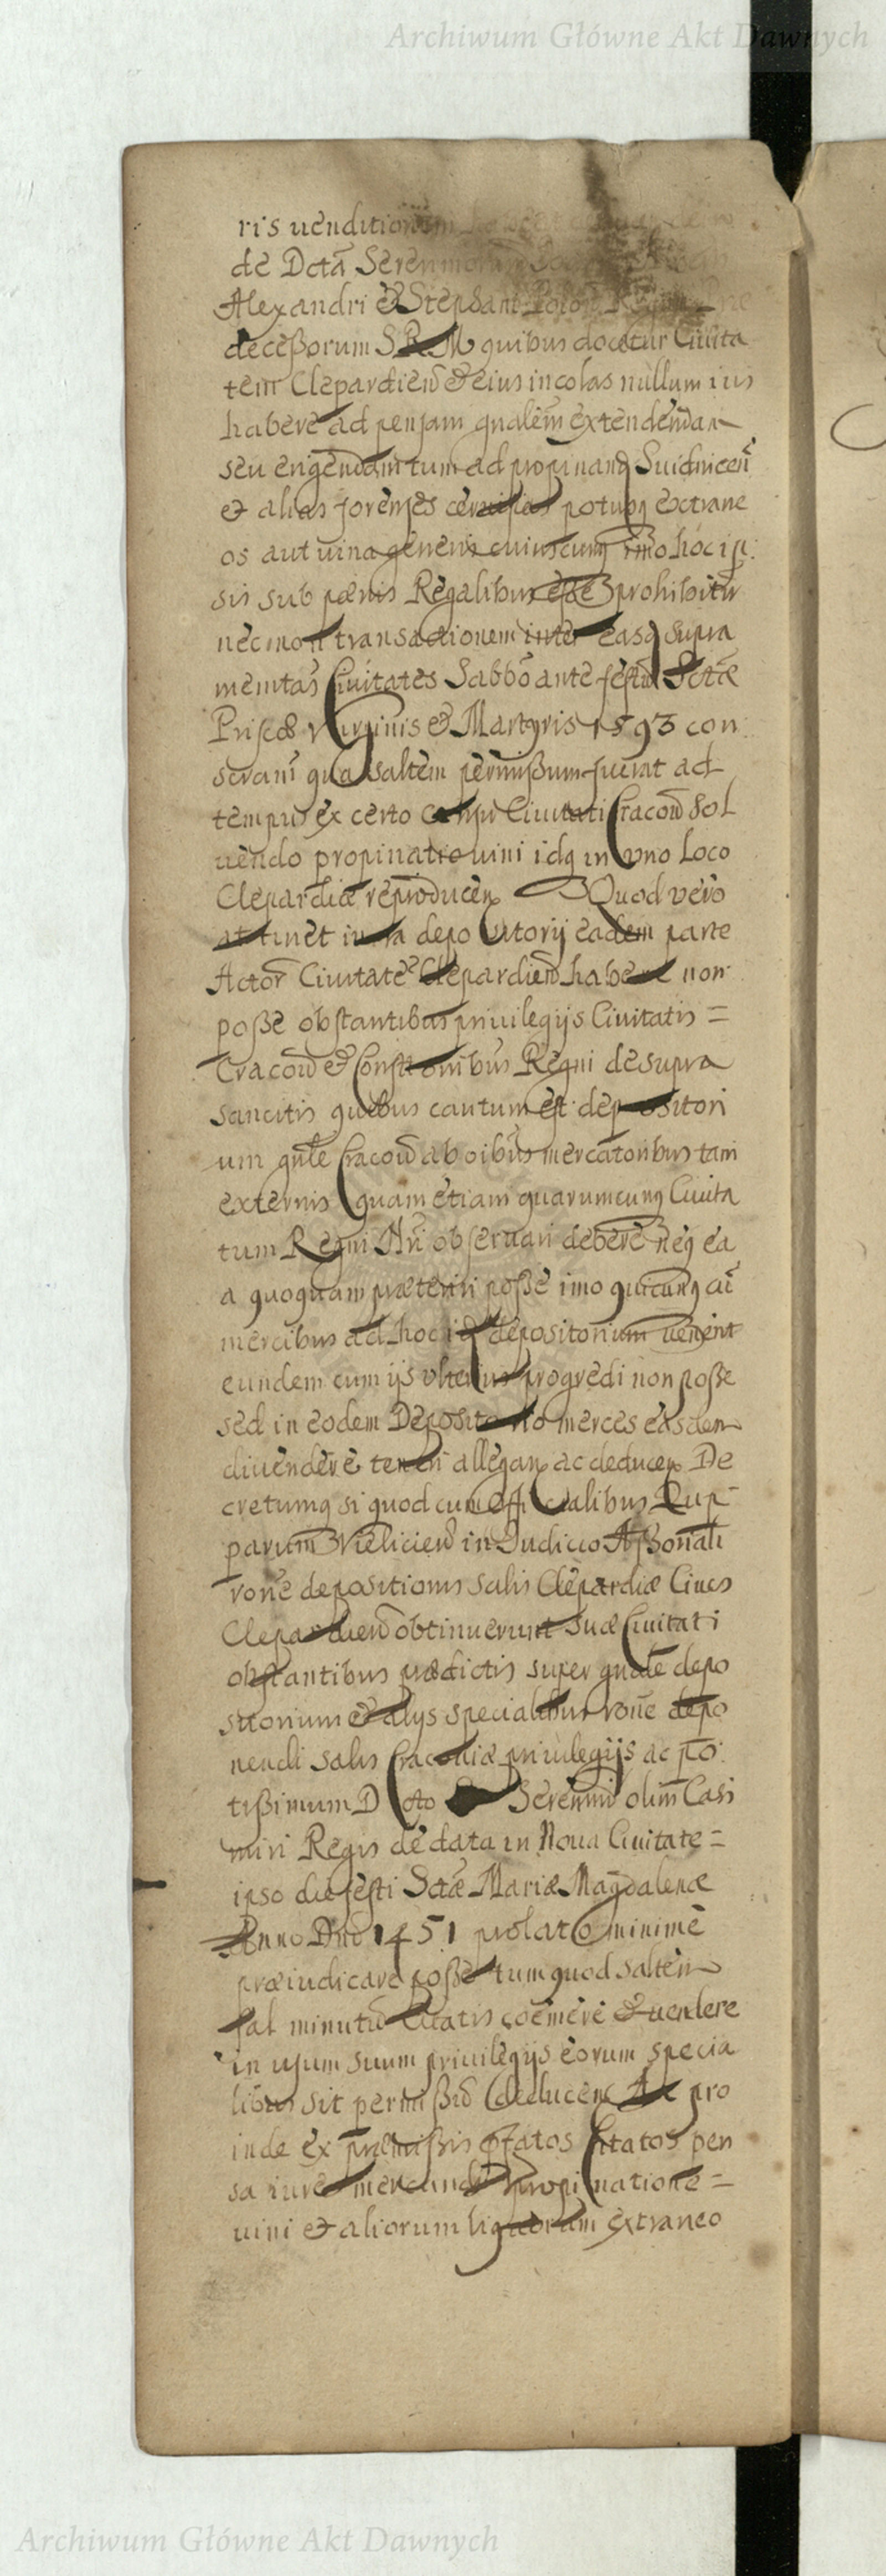 Archiwum Główne Akt Dawnych
ris uenditionem
de Dctā Seren
Alexandri & Stephani Polo
deceßorum S R M quibus docetur Ciuita
tem Clepardien̄ & eius incolas nullum ius
habere ad pensam qualem extendendam
seu erigendam tum ad propinand Suidnicen̄
et alias forenses ceruisias potusq extrane
os aut uina generis cuiuscunq imo hoc ip
sis sub pœnis Regalibus eße prohibitū
nec non transactionem inter easq supra
memtas Ciuitates Sabbō ante festū Sctæ
Priscæ Virginis & Martyris 1593 con
seruan̄ qua saltem permißum fuerat ad
tempus ex certo censu Ciuitati Cracow̄ sol
uendo propinatio uini idq in vno loco
Clepardiæ reproducen Quod vero
attinet iura depositorij eadem parte
Actor Ciuitatē Clepardien̄ habere non
poße obstantibus priuilegijs Ciuitatis =
Cracow̄ & Consttionibus Regni desupra
sancitis quibus cautum est depositori
um gnl̄e Cracow̄ ab oibus mercatoribus tam
externis quam etiam quarumcunq Ciuita
tum Regni Nr̄i obseruari debere neq ea
a quoquam præteriri poße imo quicunq cū
mercibus ad hoc id depositorium uenerit
eundem cum ijs vlterius progredi non poße
sed in eodem Depositorio merces easdem
diuendere teneri allegan ac deducen De
cretumq si quod cum officialibus Zup
parum Vieliciens̄ in Judicio Aßoriali
rone depositionis salis Clepardiæ Ciues
Clepardien̄ obtinuerunt suæ Ciuitati
obstantibus prædictis super gnale depo
sitorium & alys specialibus rone depo
nendi salis Cracouiæ priuilegijs ac po
tißimum D cto Serenmi olim Casi
miri Regis de data in Noua Ciuitate =
ipso die festi Sctæ Mariæ Magdalenæ
Anno Dni 1451 prolato minime
præiudicare poße tum quod saltem
sal minutū Citatis coemere & uendere
in usum suum priuilegijs eorum specia
libus sit permißū deducen Ac pro
inde ex præmißis pfatos Citatos pen
sa iure mercandi propinatione =
uini et aliorum liquorum extraneo
Archiwum Główne Akt Dawnych